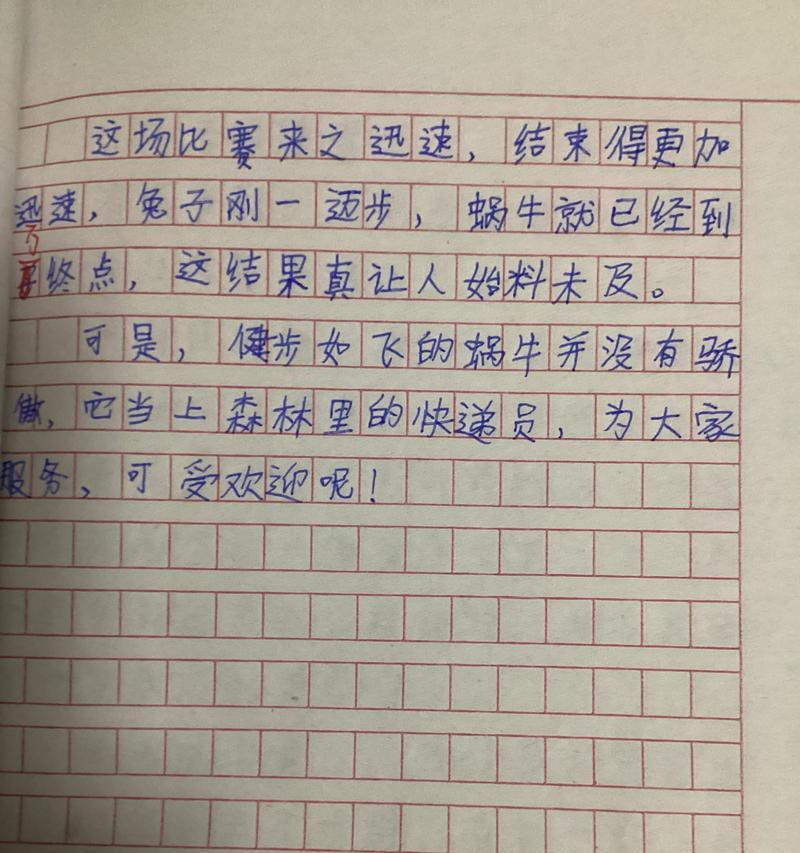 这场比赛来之迅速，结束得更加
迅速，兔子刚一迈步，蜗牛就已经到
终点，这结果真让人始料未及。
可是，健步如飞的蜗牛并没有骄
傲，它当上森林里的快递员，为大家
服务，可受欢迎呢！